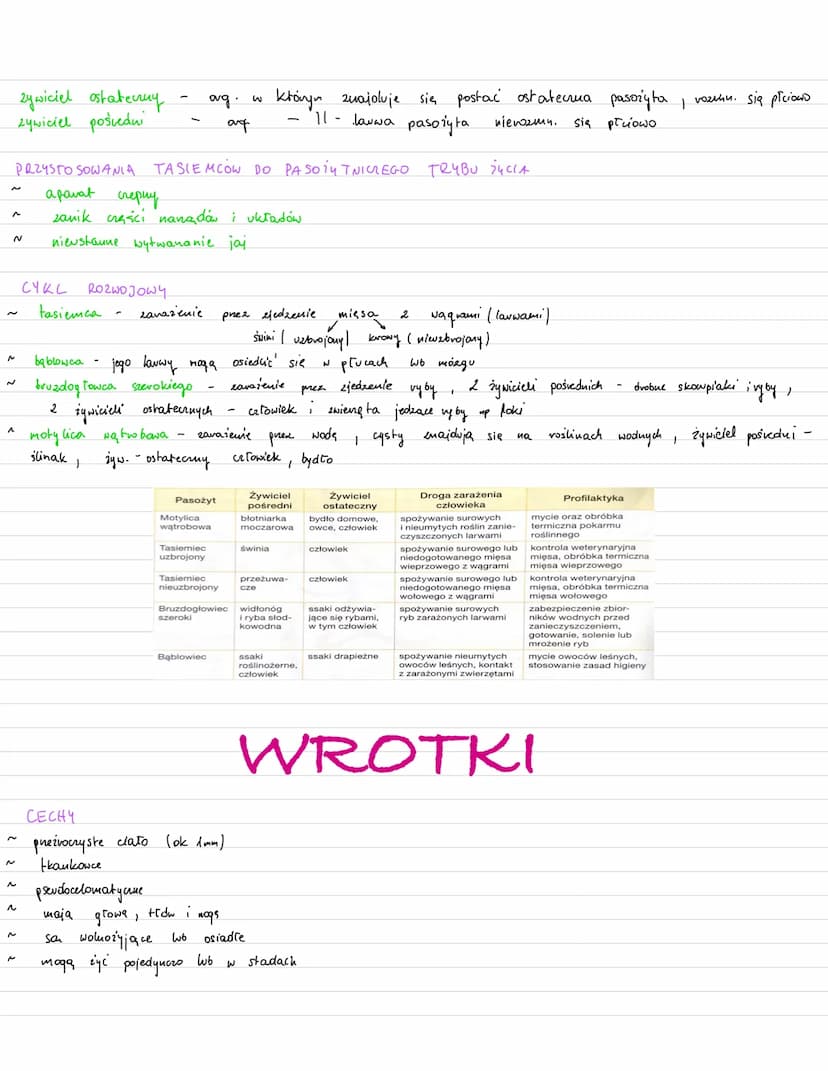 żywiciel ostateczny - org. w którym znajduje się postać ostateczna pasożyta, rozmn. się płciowo
żywiciel pośredni - org - 11 - larwa pasożyta nierozmn. się płciowo
PRZYSTOSOWANIA TASIEMCÓW DO PASOŻYTNICZEGO TRYBU ŻYCIA
~ aparat czepny
~ zanik części narządów i układów
~ nieustanne wytwarzanie jaj
CYKL ROZWOJOWY
~ tasiemca - zarażenie przez zjedzenie mięsa z wągrami (larwami)
świni (uzbrojony) krowy (nieuzbrojony)
~ bąblowca - jego larwy mogą osiedlić się w płucach lub mózgu
~ bruzdogłowca szerokiego - zarażenie przez zjedzenie ryby, 2 żywicieli pośrednich - drobne skorupiaki i ryby,
2 żywicieli ostatecznych - człowiek i zwierzęta jedzące ryby np foki
~ motylica wątrobowa - zarażenie przez wodę, cysty znajdują się na roślinach wodnych, żywiciel pośredni -
ślinak, żyw. - ostateczny człowiek, bydło
Pasożyt Żywiciel pośredni Żywiciel ostateczny Droga zarażenia człowieka Profilaktyka
Motylica wątrobowa błotniarka moczarowa bydło domowe, owce, człowiek spożywanie surowych i nieumytych roślin zanie-czyszczonych larwami mycie oraz obróbka termiczna pokarmu roślinnego
Tasiemiec uzbrojony świnia człowiek spożywanie surowego lub niedogotowanego mięsa wieprzowego z wągrami kontrola weterynaryjna mięsa, obróbka termiczna mięsa wieprzowego
Tasiemiec nieuzbrojony przeżuwa-cze człowiek spożywanie surowego lub niedogotowanego mięsa wołowego z wągrami kontrola weterynaryjna mięsa, obróbka termiczna mięsa wołowego
Bruzdogłowiec szeroki widłonóg i ryba słod-kowodna ssaki odżywia-jące się rybami, w tym człowiek spożywanie surowych ryb zarażonych larwami zabezpieczenie zbior-ników wodnych przed zanieczyszczeniem, gotowanie, solenie lub mrożenie ryb
Bąblowiec ssaki roślinożerne, człowiek ssaki drapieżne spożywanie nieumytych owoców leśnych, kontakt z zarażonymi zwierzętami mycie owoców leśnych, stosowanie zasad higieny
WROTKI
CECHY
~ przeźroczyste ciało (ok 1mm)
~ tkankowce
~ pseudocelomatyczne
~ mają głowę, tłów i nogę
~ są wolnożyjące lub osiadłe
~ mogą żyć pojedynczo lub w stadach